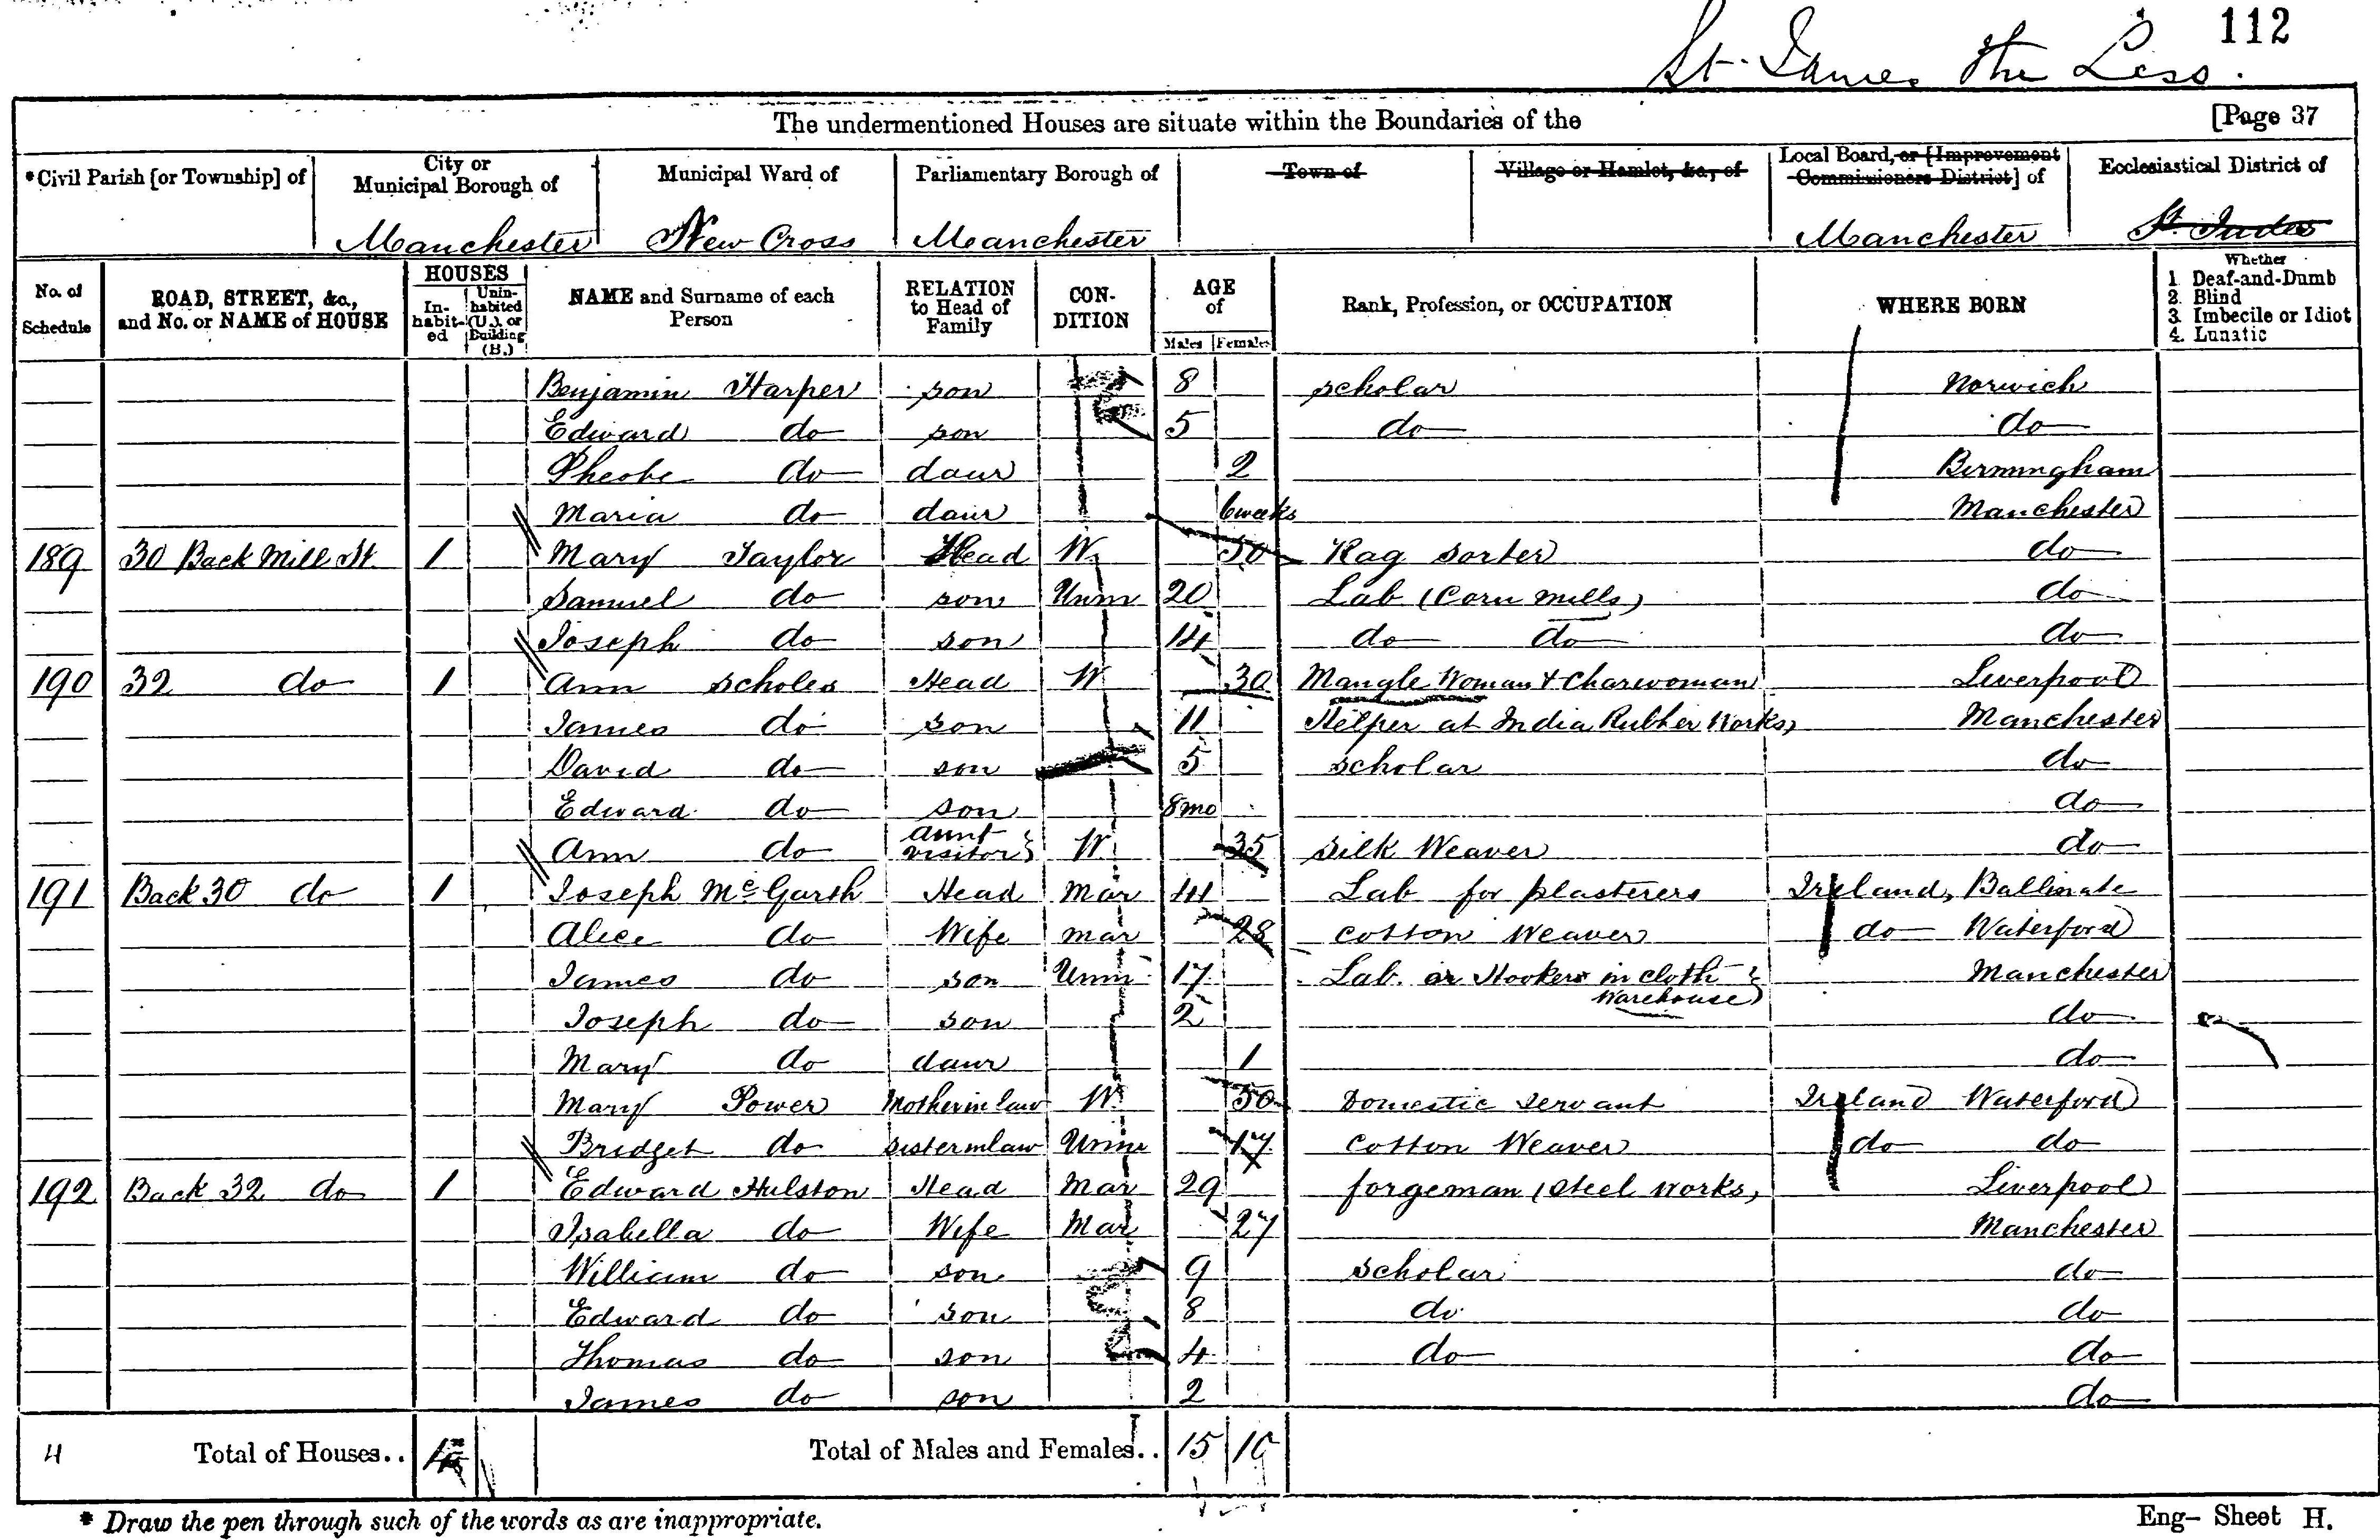 112
St. James the Less.
The undermentioned Houses are situate within the Boundaries of the
[Page 37
*Civil Parish [or Township] of
City or Municipal Borough of
Municipal Ward of
Parliamentary Borough of
Town of
Village or Hamlet, &c., of
Local Board, or [Improvement Commissioners District] of
Ecclesiastical District of
Manchester New Cross Manchester Manchester St. Judes
No. of Schedule
ROAD, STREET, &c., and No. or NAME of HOUSE
HOUSES
In-habit-ed
Unin-habited (U.), or Building (B.)
NAME and Surname of each Person
RELATION to Head of Family
CON-DITION
AGE of
Males Females
Rank, Profession, or OCCUPATION
WHERE BORN
Whether
1. Deaf-and-Dumb
2. Blind
3. Imbecile or Idiot
4. Lunatic
Benjamin Harper son 8 scholar Norwich
Edward do son 5 do do
Pheobe do daur 2 Birmingham
Maria do daur 6weeks Manchester
189 30 Back Mill St 1 Mary Taylor Head W. 50 Rag Sorter do
Samuel do son Unm 20 Lab (Corn Mills) do
Joseph do son 14 do do do
190 32 do 1 Ann Scholes Head W 30 Mangle Woman & Charwoman Liverpool
James do son 11 Helper at India Rubber Works, Manchester
David do son 5 scholar do
Edward do son 8mo do
Ann do aunt visitor W 35 Silk Weaver do
191 Back 30 do 1 Joseph McGarth Head Mar 44 Lab for plasterers Ireland,
Alice do Wife Mar 28 Cotton Weaver do Waterford
James do son Unm 17 Lab. or Hooker in cloth Warehouse Manchester
Joseph do son 2 do
Mary do daur 1 do
Mary Power Mother in law W. 50 Domestic Servant Ireland Waterford
Bridget do Sister in law Unm 17 Cotton Weaver do do
192 Back 32 do 1 Edward Hulston Head Mar 29 forgeman (Steel Works) Liverpool
Isabella do Wife Mar 27 Manchester
William do son 9 scholar do
Edward do son 8 do do
Thomas do son 4 do do
James do son 2 do
4 Total of Houses.. Total of Males and Females.. 15 10
* Draw the pen through such of the words as are inappropriate.
Eng- Sheet H.